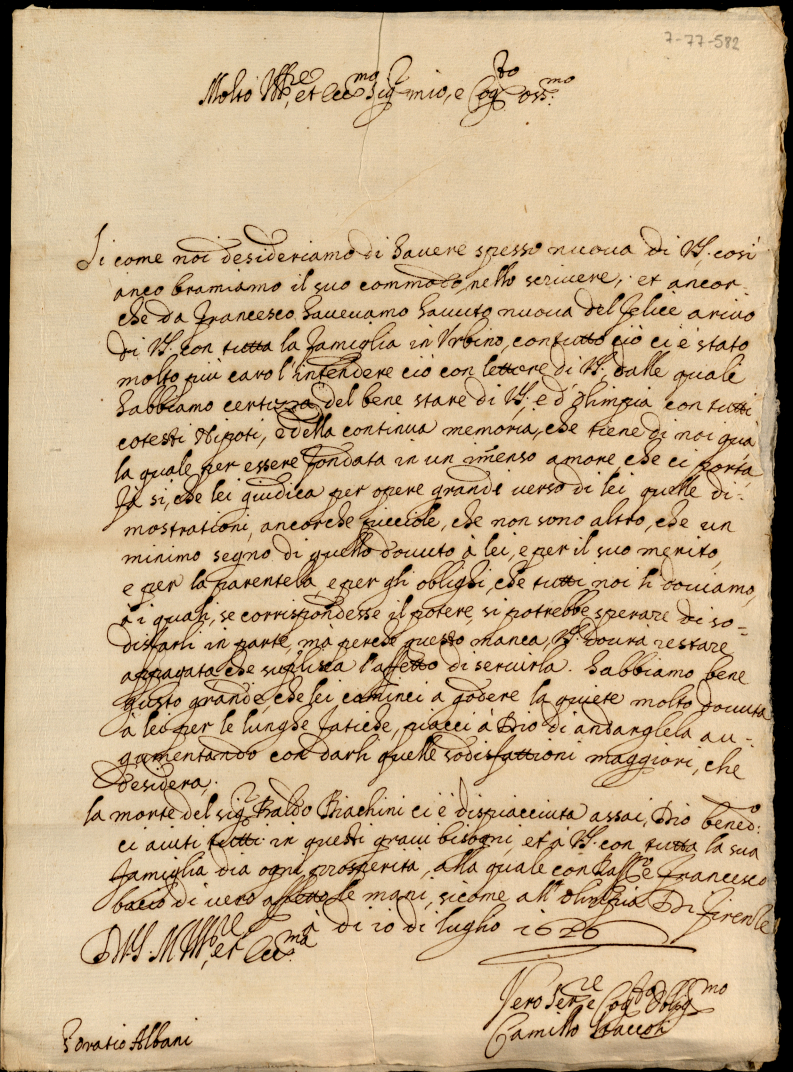 7-77-582
Molto Ill.re et ecc.mo Sig.r mio, e Cog.to oss.mo
Si come noi desideriamo di havere spesso nuova di V.S. cosi
anco bramiamo il suo commodo nello scrivere, et ancor-
che da Francesco havevamo havuto nuova del felice arivo
di V.S. con tutta la famiglia in Urbino, contutto ciò ci è stato
molto piu caro l'intendere ciò con lettere di V.S. dalle quale
habbiamo certezza del bene stare di V.S. e d'Olimpia con tutti
cotesti Nipoti, e della continua memoria, che tiene di noi quà
la quale per essere fondata in un imenso amore, che ci porta,
fà si, che lei giudica per opere grande verso di lei quelle di-
mostrationi, ancorche picciole, che non sono altro, che un
minimo segno di quello dovuto à lei, e per il suo merito,
e per la parentela, e per gli oblighi, che tutti noi li doviamo,
à i quali, se corrispondesse il potere, si potrebbe sperare di so=
disfarli in parte, ma perche questo manca, V.S. dovra restare
appagata che suplisca l'affetto di servirla. habbiamo bene
gusto grande che lei cominci a godere la quiete molto dovuta
à lei per le lunghe fatiche, piacci à Dio di andarglela au-
gumentando con darli quelle sodisfattioni maggiori, che
desidera.
la morte del sig.r Baldo Biachini ci è dispiacciuta assai, Dio bened.o
ci aiuti tutti in questi gravi bisogni, et à V.S. con tutta la sua
famiglia dia ogni prosperita, alla quale con Raff.o e Francesco
bacio di vero affetto le mani, sicome all'Olimpia Di Firenze
à di 10 di luglio 1626
D V.S. M. Ill.re et ecc.ma
Vero Ser.re e Cog.to Oblig.mo
Camillo Staccoli
Horatio Albani